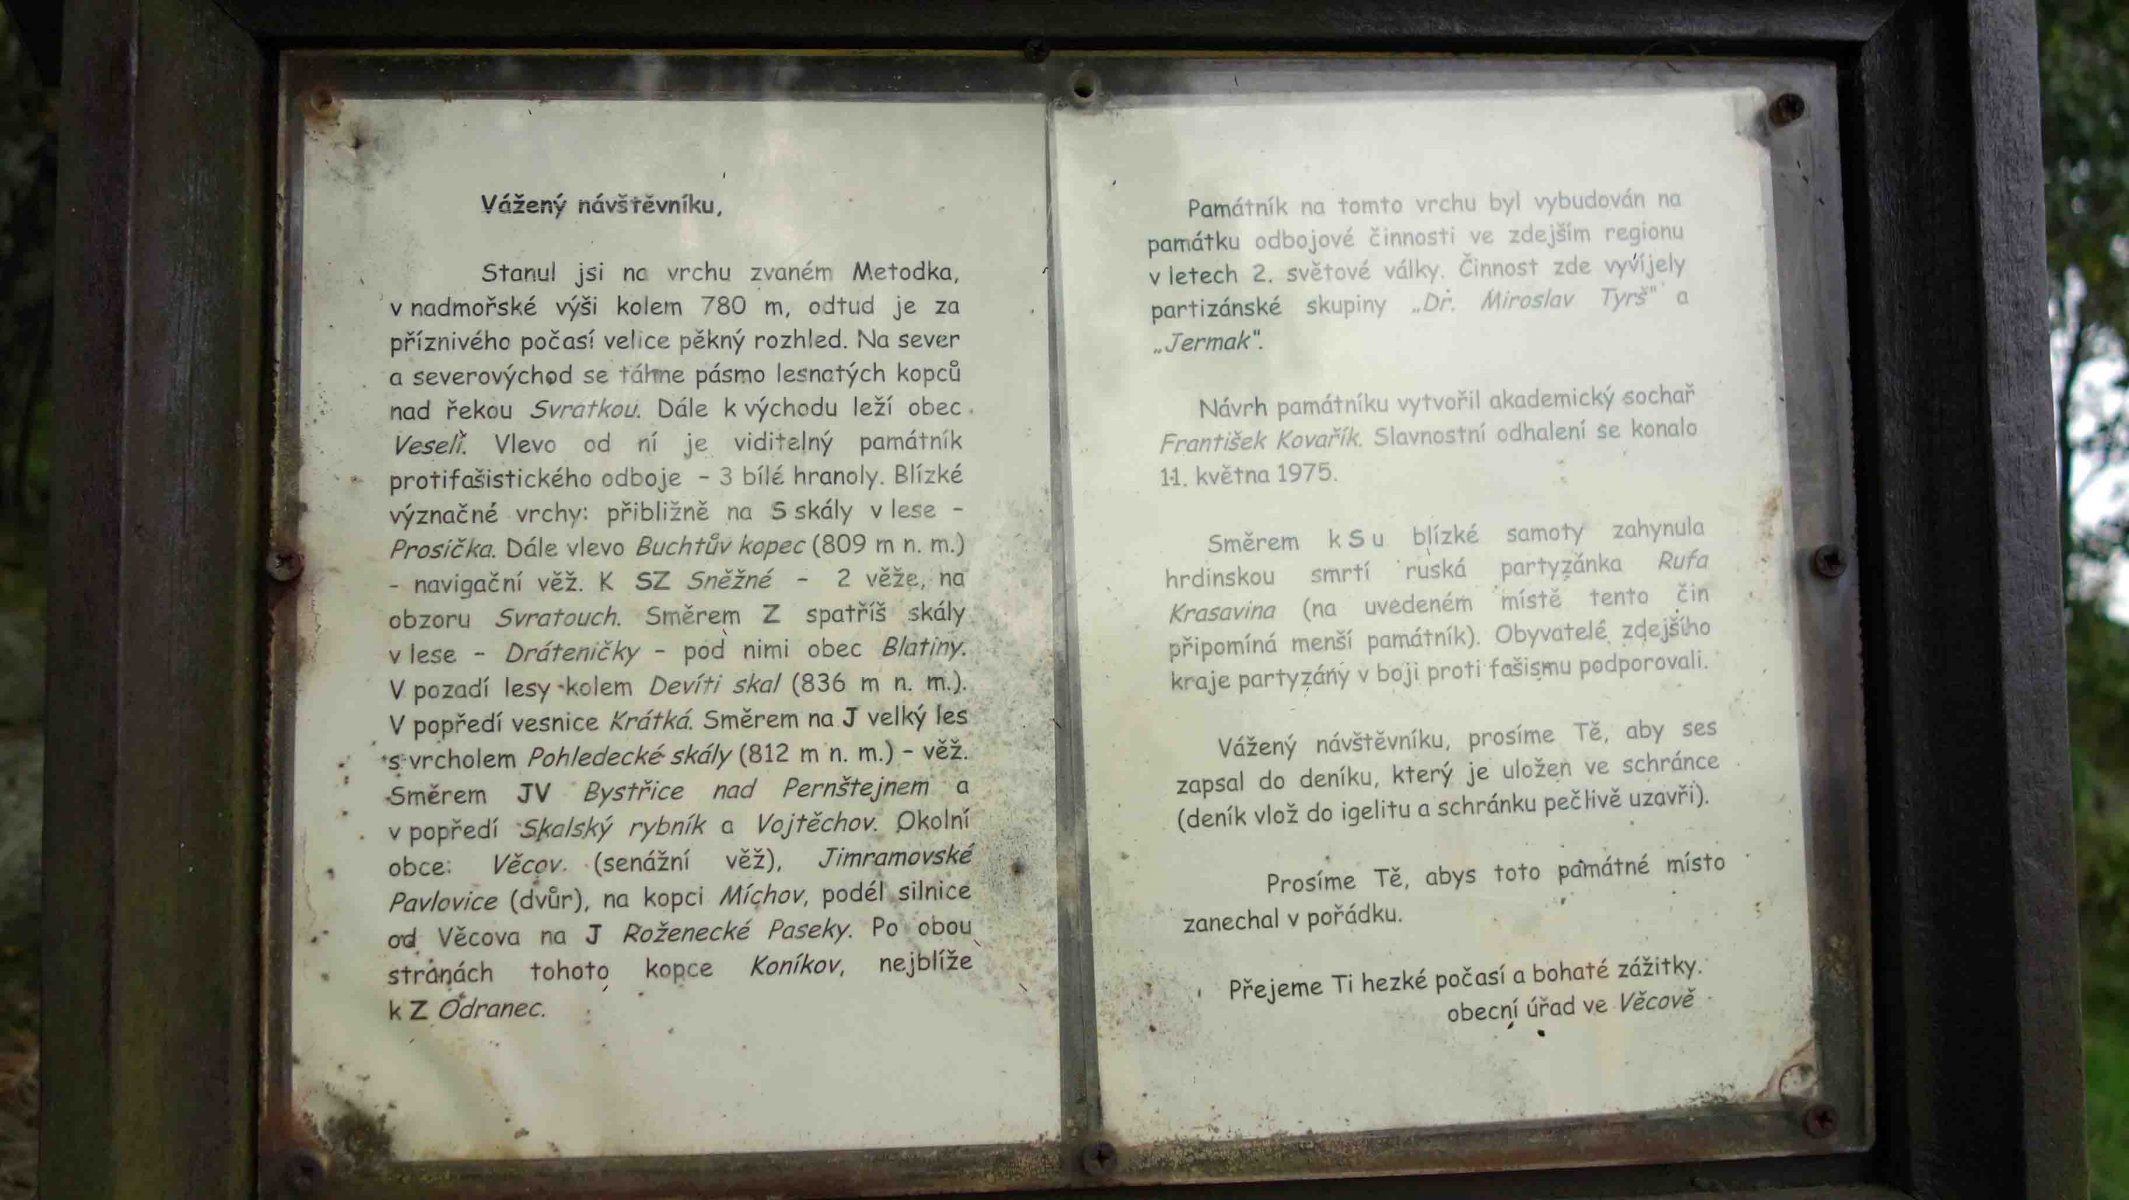 Vážený návštěvníku,
Stanul jsi na vrchu zvaném Metodka,
v nadmořské výši kolem 780 m, odtud je za
příznivého počasí velice pěkný rozhled. Na sever
a severovýchod se táhne pásmo lesnatých kopců
nad řekou Svratkou. Dále k východu leží obec
Veselí. Vlevo od ní je viditelný památník
protifašistického odboje – 3 bílé hranoly. Blízké
význačné vrchy: přibližně na S skály v lese –
Prosička. Dále vlevo Buchtův kopec (809 m n. m.)
– navigační věž. K SZ Sněžné – 2 věže, na
obzoru Svratouch. Směrem Z spatříš skály
v lese – Dráteničky – pod nimi obec Blatiny.
V pozadí lesy kolem Devíti skal (836 m n. m.).
V popředí vesnice Krátká. Směrem na J velký les
s vrcholem Pohledecké skály (812 m n. m.) – věž.
Směrem JV Bystřice nad Pernštejnem a
v popředí Skalský rybník a Vojtěchov. Okolní
obce: Věcov. (senážní věž), Jimramovské
Pavlovice (dvůr), na kopci Míchov, podél silnice
od Věcova na J Roženecké Paseky. Po obou
stranách tohoto kopce Koníkov, nejblíže
k Z Odranec.
Památník na tomto vrchu byl vybudován na
památku odbojové činnosti ve zdejším regionu
v letech 2. světové války. Činnost zde vyvíjely
partizánské skupiny „Dr. Miroslav Tyrš" a
„Jermak".
Návrh památníku vytvořil akademický sochař
František Kovařík. Slavnostní odhalení se konalo
11. května 1975.
Směrem k S u blízké samoty zahynula
hrdinskou smrtí ruská partyzánka Rufa
Krasavina (na uvedeném místě tento čin
připomíná menší památník). Obyvatelé zdejšího
kraje partyzány v boji proti fašismu podporovali.
Vážený návštěvníku, prosíme Tě, aby ses
zapsal do deníku, který je uložen ve schránce
(deník vlož do igelitu a schránku pečlivě uzavři).
Prosíme Tě, abys toto památné místo
zanechal v pořádku.
Přejeme Ti hezké počasí a bohaté zážitky.
obecní úřad ve Věcově